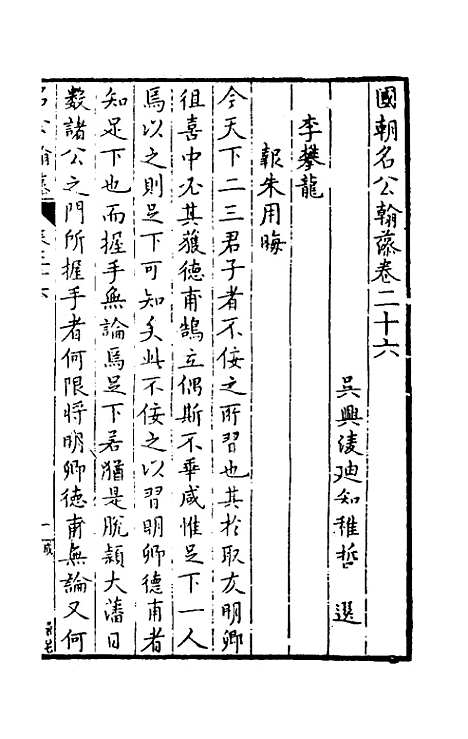 國朝名公翰藻卷二十六
吳興凌迪知稚哲 選
李攀龍
報朱用晦
今天下二三君子者不佞之所習也其於取友明卿
徂喜中丕其獲德甫鵠立偶斯不華咸惟足下一人
焉以之則足下可知矣此不佞之以習明卿德甫者
知足下也而握手無論焉足下若猶是脫穎大藩日
數諸公之門所握手者何限將明卿德甫無論又何
名公翰藻 卷二十六 一